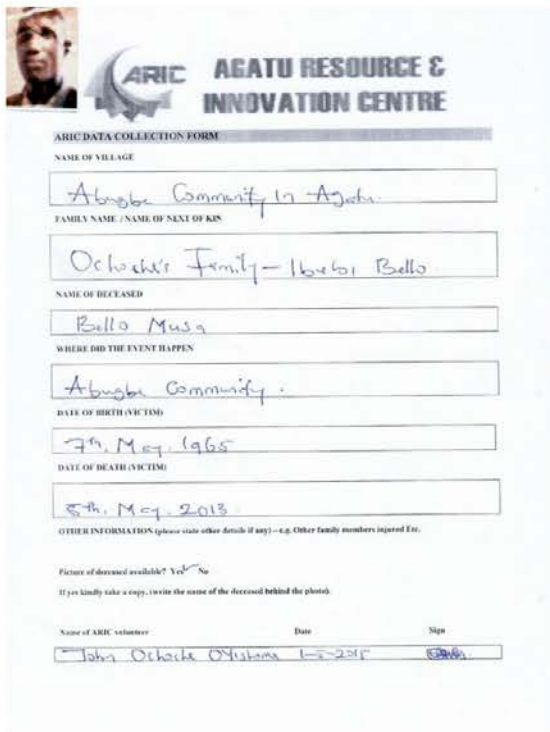 ARIC AGATU RESOURCE &
INNOVATION CENTRE
ARIC DATA COLLECTION FORM
NAME OF VILLAGE
Abugbe Community In Agatu.
FAMILY NAME / NAME OF NEXT OF KIN
Ochoche's Family - Bello
NAME OF DECEASED
Bello Musa
WHERE DID THE EVENT HAPPEN
Abugbe Community.
DATE OF BIRTH (VICTIM)
7th. May. 1965
DATE OF DEATH (VICTIM)
8th. May. 2013
OTHER INFORMATION (please state other details if any) – e.g. Other family members injured Etc.
Picture of deceased available? Yes No
If yes kindly take a copy, (write the name of the deceased behind the photo).
Name of ARIC volunteer Date Sign
John Ochoche 2015